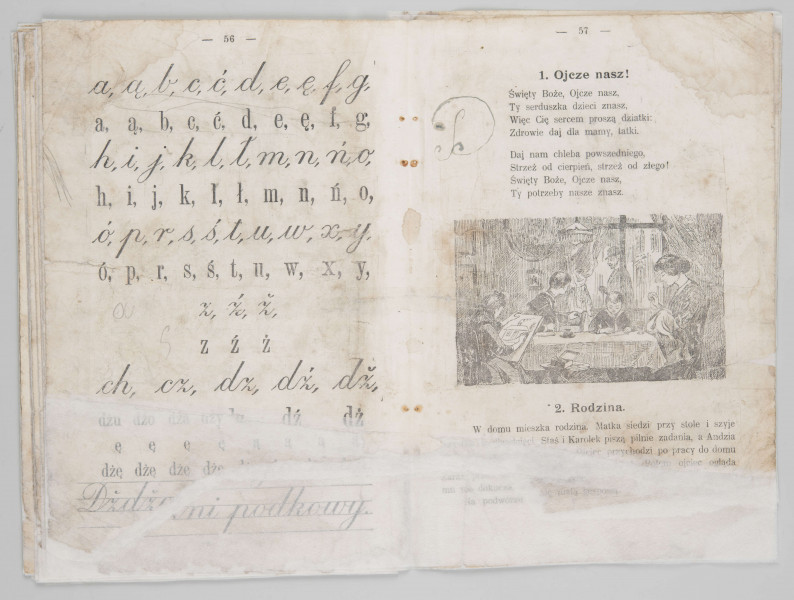 — 56 —
a, ą, b, c, ć, d, e, ę, f, g,
a, ą, b, c, ć, d, e, ę, f, g,
h, i, j, k, l, ł, m, n, ń, o,
h, i, j, k, l, ł, m, n, ń, o,
ó, p, r, s, ś, t, u, w, x, y,
ó, p, r, s, ś, t, u, w, x, y,
z, ź, ż,
z ź ż
ch, cz, dz, dź, dż,
dź dż
dżę dże dże
podkowy.
— 57 —
1. Ojcze nasz!
Święty Boże, Ojcze nasz,
Ty serduszka dzieci znasz,
Więc Cię sercem proszą dziatki:
Zdrowie daj dla mamy, tatki.
Daj nam chleba powszedniego,
Strzeż od cierpień, strzeż od złego!
Święty Boże, Ojcze nasz,
Ty potrzeby nasze znasz.
2. Rodzina.
W domu mieszka rodzina. Matka siedzi przy stole i szyje
Staś i Karolek piszą pilnie zadania, a Andzia
przychodzi po pracy do domu
ojciec ogląda